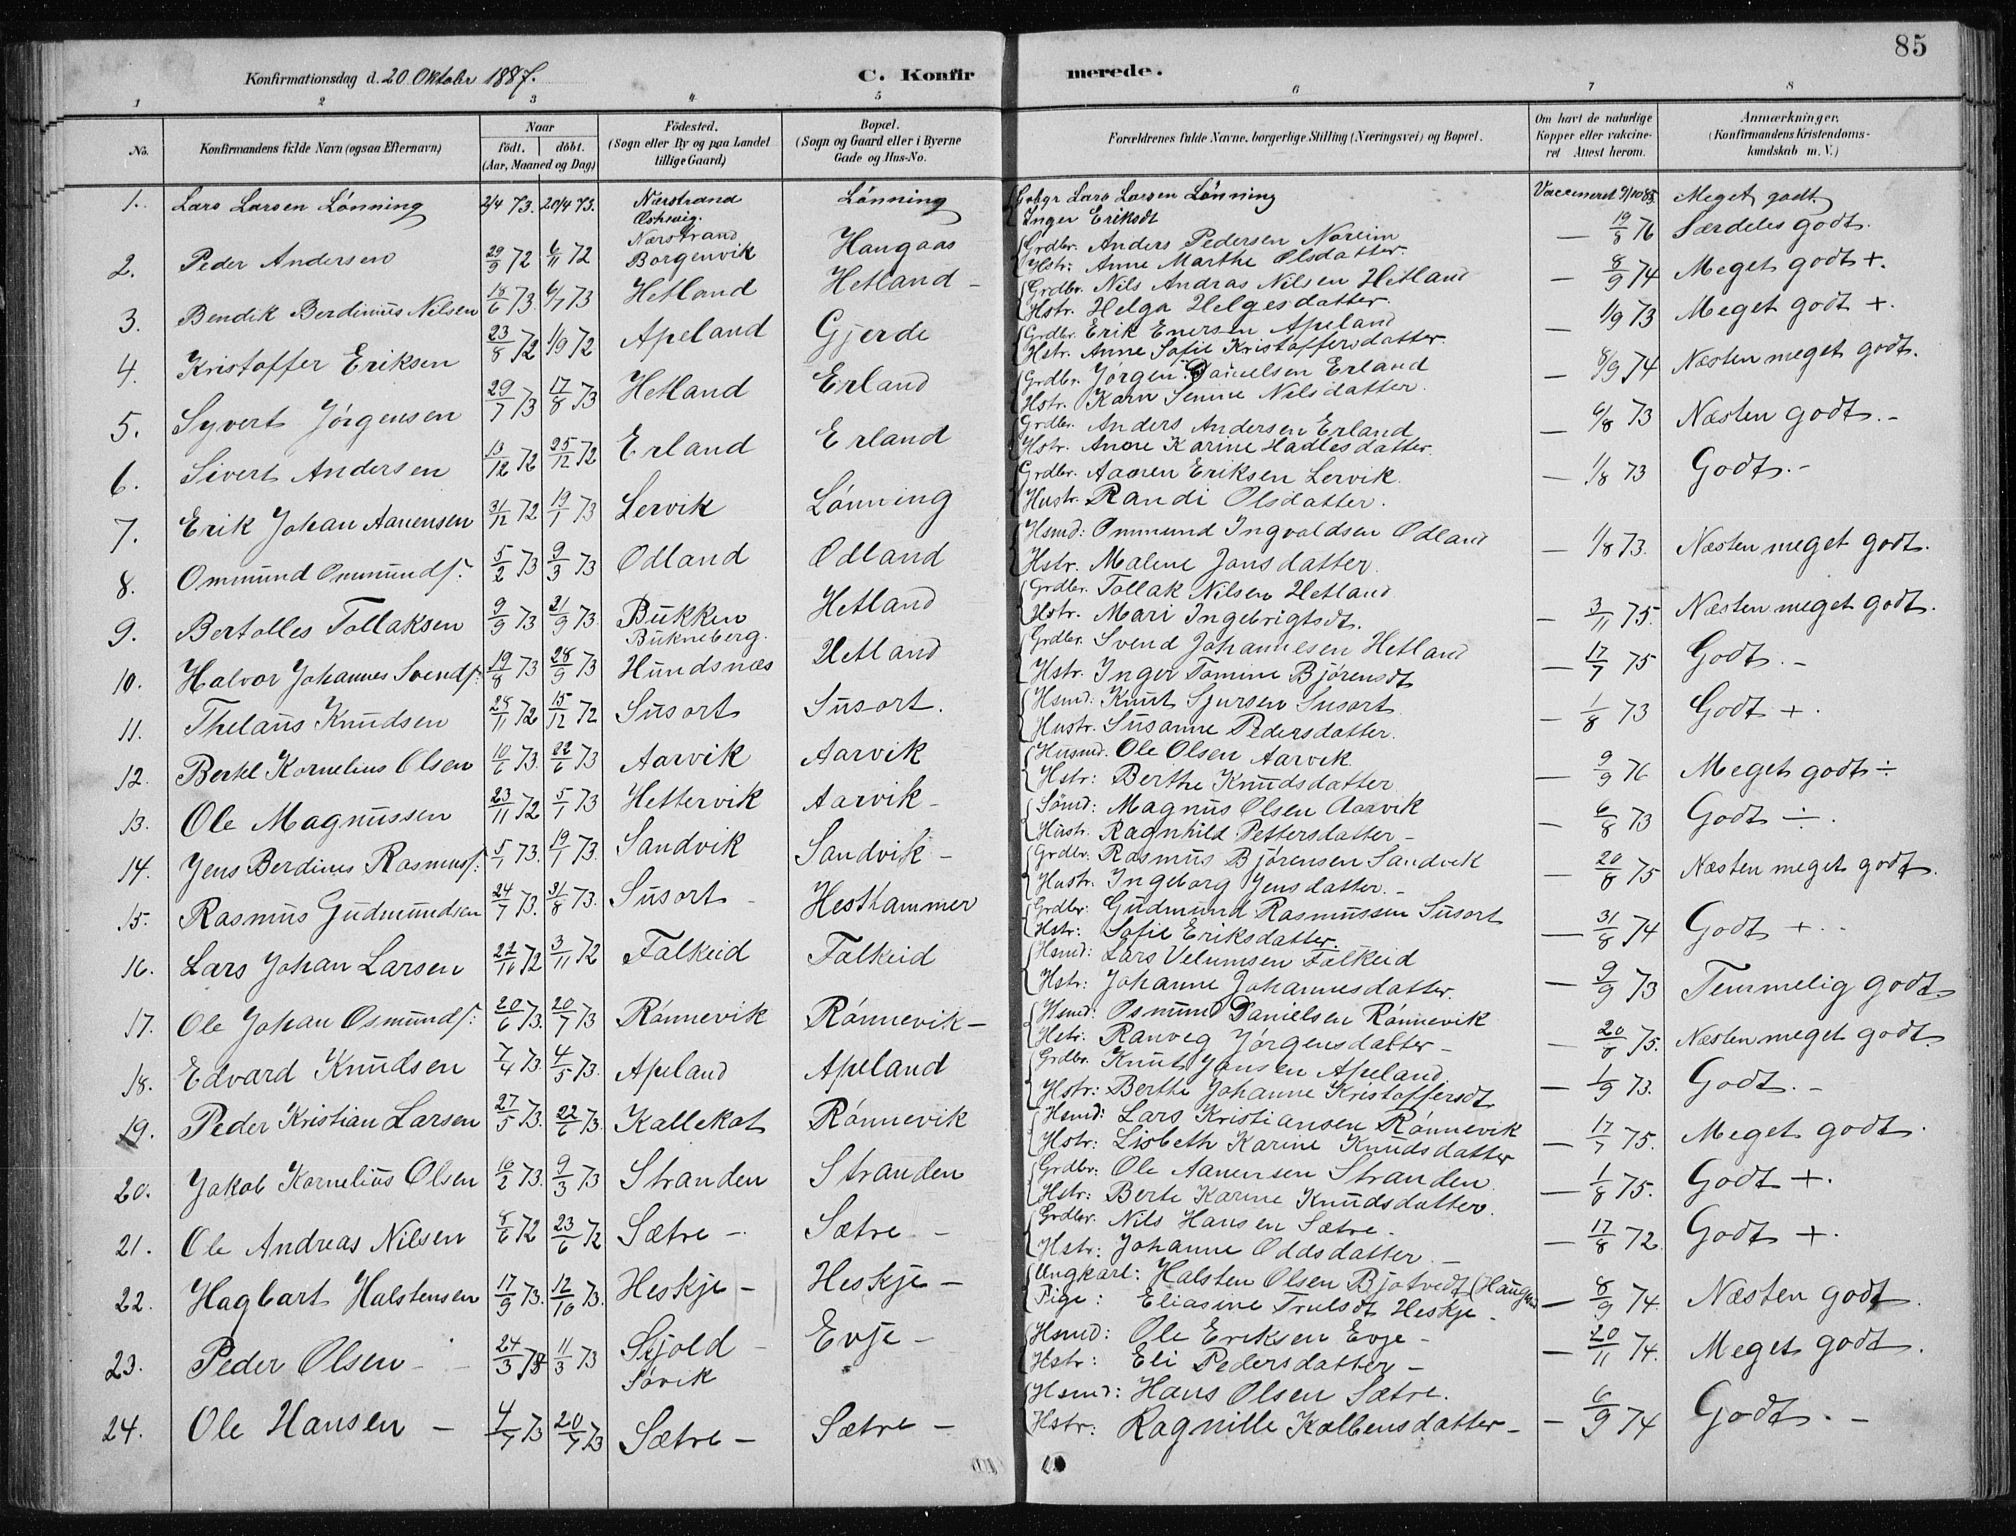 85
Konfirmationsdag d. 20 Oktober 1887.
C. Konfirmerede.
1 2 3 4 5 6 7 8
No. Konfirmandens fulde Navn (ogsaa Efternavn) Naar født. døbt. (Aar, Maaned og Dag) Fødested. (Sogn eller By og paa Landet tillige Gaard) Bopæl. (Sogn og Gaard eller i Byerne Gade og Hus-No. Forældrenes fulde Navne, borgerlige Stilling (Næringsvei) og Bopæl. Om havt de naturlige Kopper eller vakcineret Attest herom. Anmærkninger. (Konfirmandens Kristendomskundskab m. V.)
1. Lars Larsen Lønning 2/4 73. 20/4 73. Nærstrand Lønning Lars Larsen Lønning Vaccineret 9/10 85. Meget godt.
Inger Eriksdt
2. Peder Andersen 29/9 72 6/11 72 Nærstrand Borgenvik Haugaas Grdbr. Anders Pedersen Noreim — 19/8 76 Særdeles godt.
Hstr: Anne Marthe Olsdatter.
3. Bendik Berdinius Nilsen 18/6 73. 6/7 73 Hetland Hetland – Grdbr. Nils Andras Nilsen Hetland — 8/9 74 Meget godt +.
Hstr. Helga Helgesdatter.
4. Kristoffer Eriksen 23/8 72 1/9 72 Apeland Gjerde Grdbr. Erik Enersen Apeland — 1/9 73 Meget godt +.
Hstr. Anne Sofie Kristoffersdatter.
5. Syvert Jörgensen 29/7 73 17/8 73 Hetland Erland Grdbr. Jörgen Danielsen Erland — 8/9 74 Næsten meget godt.
Hstr. Karn Semine Nilsdatter.
6. Sivert Andersen 13/12 72 25/12 72 Erland Erland Grdbr. Anders Andersen Erland — 6/8 73 Næsten godt. –
Hstr. Anne Karine Hadlesdatter.
7. Erik Johan Aanensen 31/12 72 19/1 73 Lervik Lønning Grdbr. Aanen Eriksen Lervik — 1/8 73 Godt. –
Hustr. Randi Olsdatter.
8. Ommund Ommunds. 5/2 73 9/3 73 Odland Odland Hsmd: Ommund Ingvaldsen Odland — 1/8 73. Næsten meget godt.
Hstr. Malene Jansdatter.
9. Bertolles Tollaksen 9/9 73 21/9 73 Bukken Bukneberg. Hetland Grdbr. Tollak Nilsen Hetland — 3/11 75. Næsten meget godt.
Hstr. Mari Ingebrigtsdt.
10. Halvor Johannes Svends. 19/8 73 28/9 73 Hundsnæs Hetland Grdbr. Svend Johannesen Hetland — 17/7 75 Godt. –
Hstr. Inger Tomine Bjørensdt
11. Thelaus Knudsen 28/11 72 15/12 72 Susort Susort. Hsmd: Knut Sjursen Susort — 1/8 73 Godt +.
Hustr. Susanne Pedersdatter.
12. Bertel Kornelius Olsen 10/6 73. 22/6 73 Aarvik Aarvik Husmd. Ole Olsen Aarvik — 9/9 76 Meget godt ÷
Hstr: Berthe Knudsdatter
13. Ole Magnussen 23/11 72 5/1 73 Hettervik Aarvik – Sømd: Magnus Olsen Aarvik — 6/8 73 Godt ÷.
Hustr. Ragnhild Pettersdatter –
14. Jens Berdines Rasmus. 5/1 73. 19/1 73. Sandvik Sandvik – Grdbr. Rasmus Bjørensen Sandvik — 20/8 75 Næsten meget godt.
Hustr. Ingeborg Jensdatter. –
15. Rasmus Gudmundsen 24/7 73. 31/8 73. Susort – Hesthammer Grdbr: Gudmund Rasmussen Susort — 31/8 74 Godt +. .
Hstr: Sofie Eriksdatter.
16. Lars Johan Larsen 22/10 72 3/11 72 Falkeid Falkeid Hsmd: Lars Velumsen Falkeid — 9/9 73 Temmelig godt.
Hstr: Johanne Johannesdatter.
17. Ole Johan Osmunds: 20/6 73. 20/7 73 Rønnevik Rønnevik – Hsmd: Osmund Danielsen Rønnevik — 20/8 75. Næsten meget godt.
Hstr: Ranveg Jørgensdatter –
18. Edvard Knudsen 7/4 73. 4/5 73. Apeland Apeland Grdbr. Knut Jansen Apeland — 1/9 73. Godt. –
Hstr: Berthe Johanne Kristoffersdt.
19. Peder Kristian Larsen 27/5 73. 22/6 73. Kallekot Rønnevik Hsmd: Lars Kristiansen Rønnevik — 17/7 75. Meget godt.
Hstr: Lisbeth Karine Knudsdatter
20. Jakob Kornelius Olsen 16/2 73. 9/3 73 Stranden Stranden Grdbr: Ole Aanensen Stranden — 1/8 75. Godt +.
Hstr: Berte Karine Knudsdatter.
21. Ole Andreas Nilsen 8/6 72 23/6 72 Sætre – Sætre – Grdbr. Nils Hansen Sætre. — 17/8 72. Godt +.
Hstr: Johanne Oddsdatter –
22. Hagbart Halstensen 17/9 73. 12/10 73. Heskje – Heskje – Ungkarl: Halsten Olsen Bjotvedt — 8/9 74. Næsten godt.
Pige: Eliasine Trulsdt Heskje –
23. Peder Olsen – 24/3 73 11/3 73 Skjold – Søvik Evje – Hsmd: Ole Eriksen Evje – — 20/11 74. Meget godt.
Hstr: Eli Pedersdatter –
24. Ole Hansen – 4/7 73 20/7 73 Sætre – Sætre – Hsmd: Hans Olsen Sætre. – 6/9 74 Godt. –
Hstr: Ragnille Kolbensdatter –